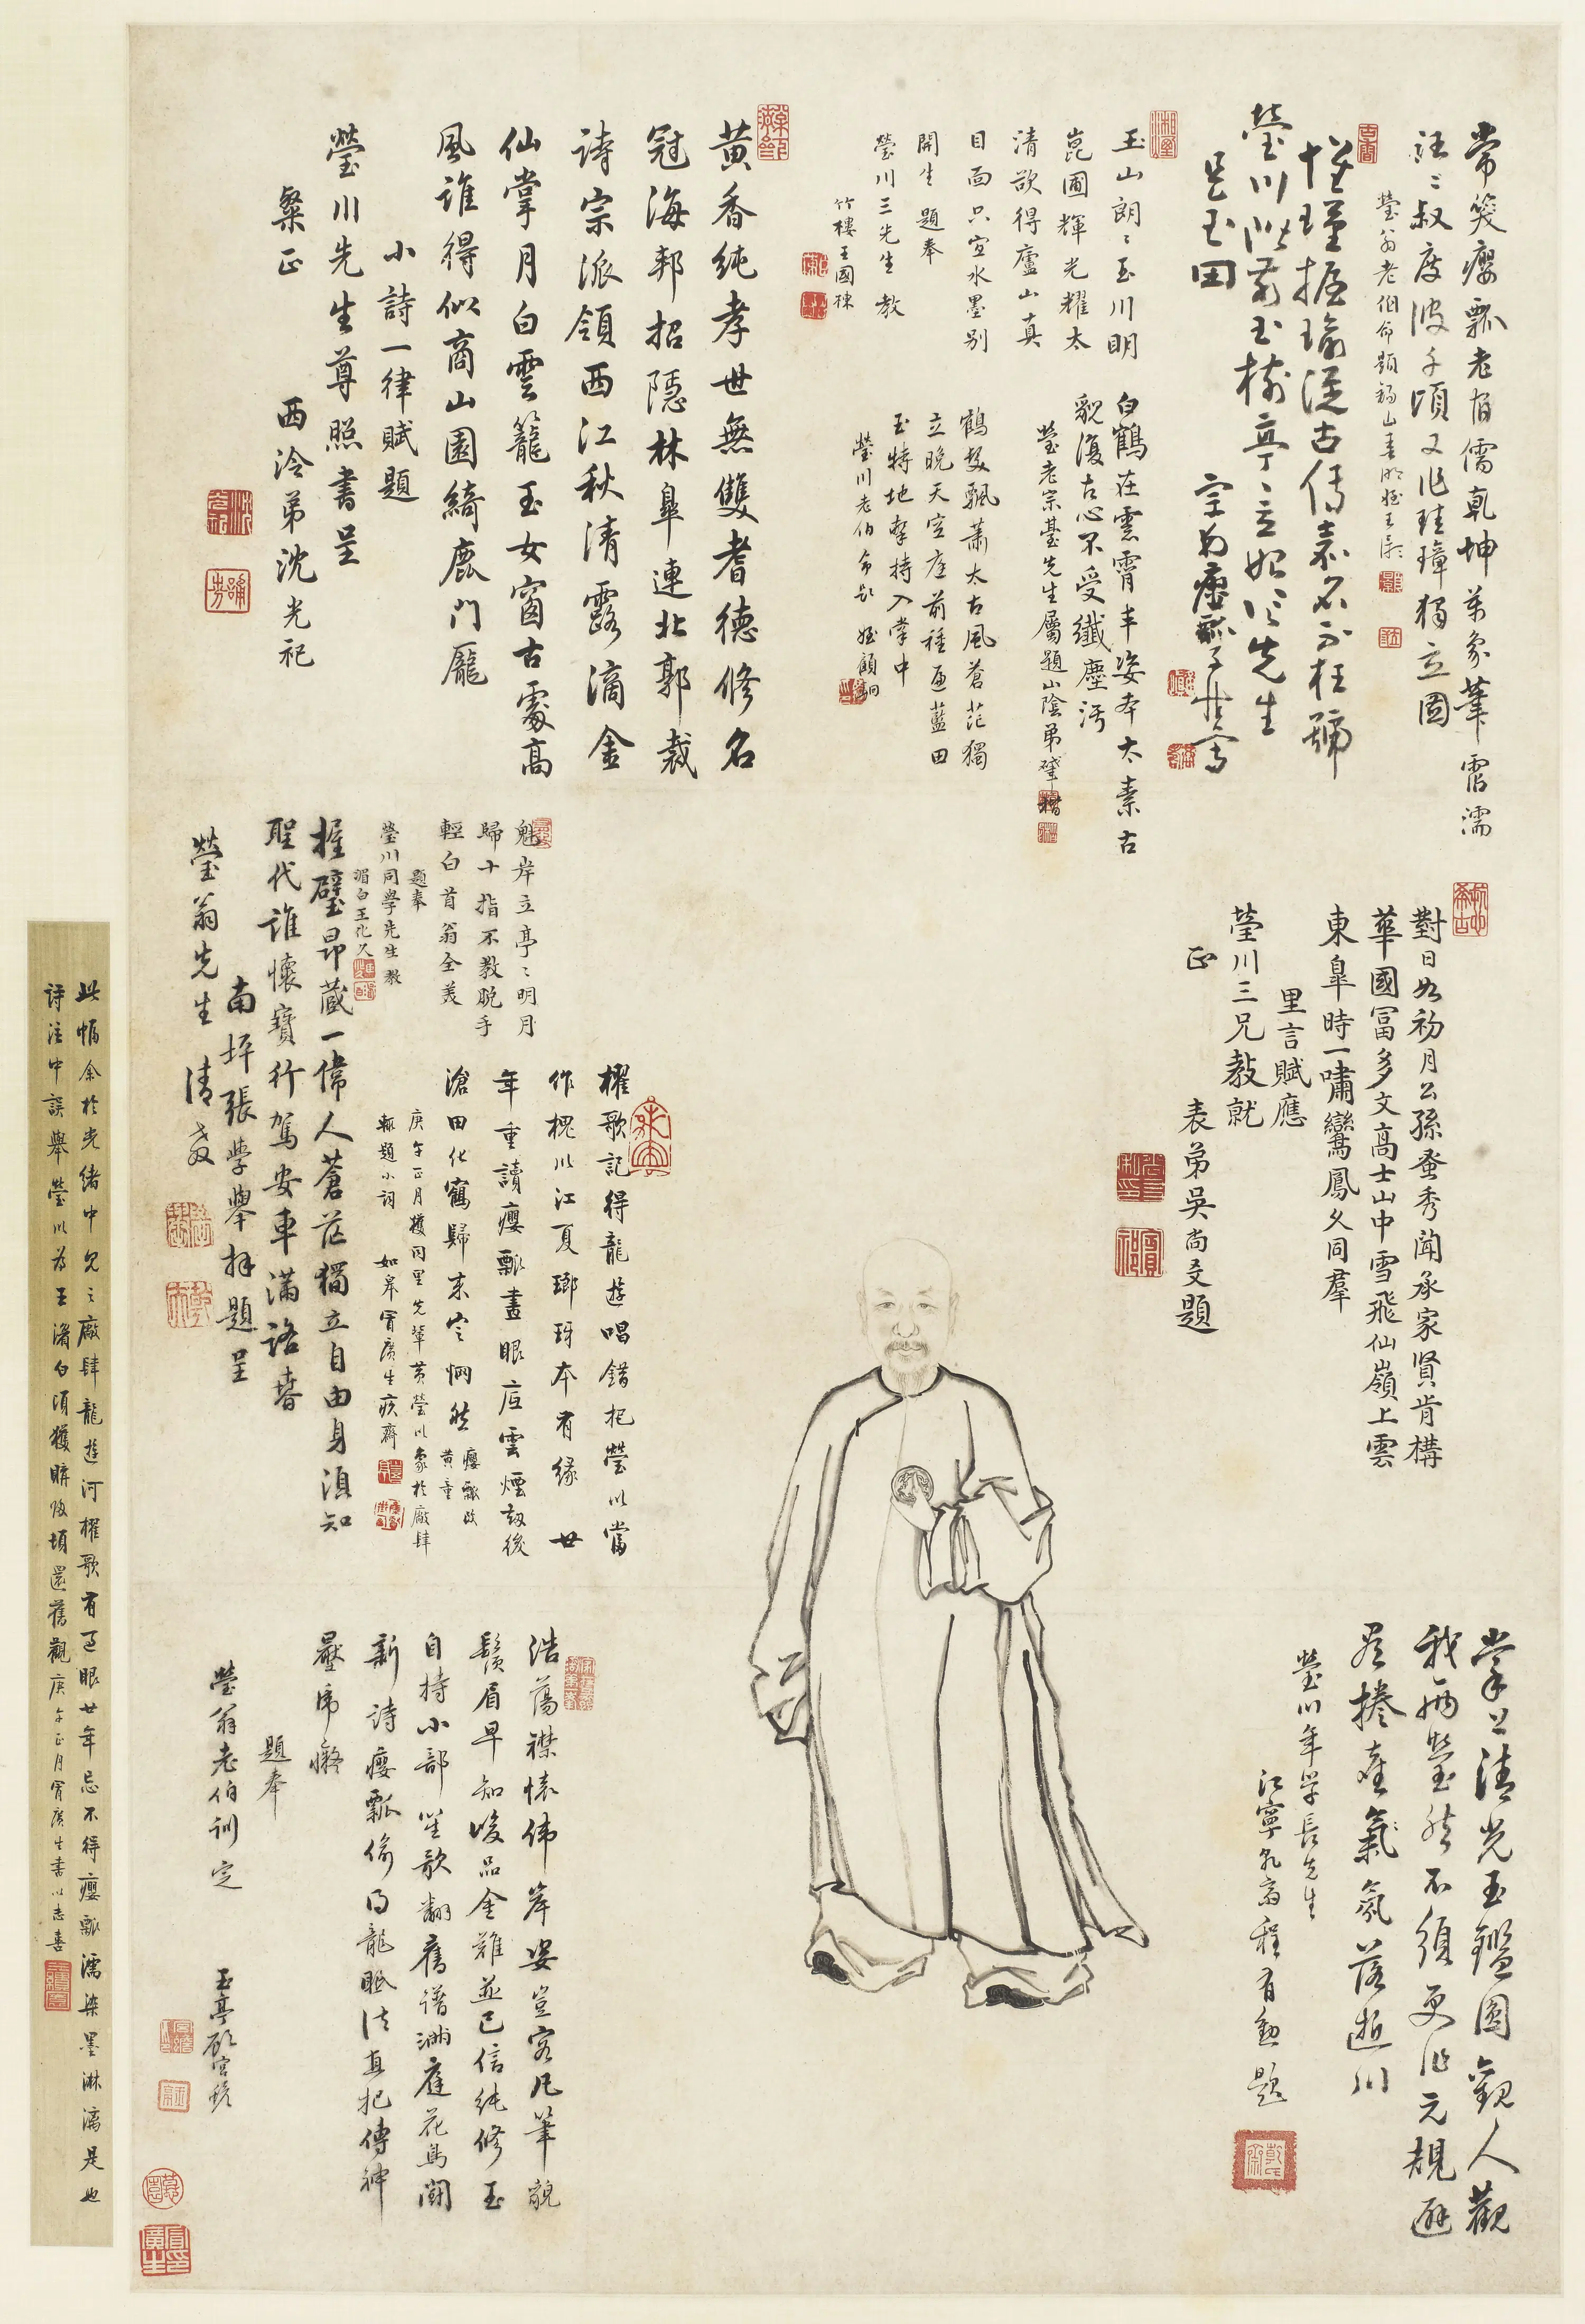 常笑癭瓢老腐儒乾坤萬象筆霑濡
汪〻叔度波千頃又作珪璋獨立圖
瑩翁老伯命題
懷瑾握瑜湛古傳嘉名不枉號
瑩川階前玉樹亭亭立始信先生
是玉田
玉山朗〻玉川明
崑圃輝光耀太
清欲得廬山真
目面只宜水墨別
開生題奉
瑩川三先生教
竹樓王國棟
白鶴在雲霄丰姿本太素古
貌復古心不受纖塵污
瑩老宗臺先生屬題山陰弟
鶴髮飄蕭太古風蒼茫獨
立晚天空庭前種匝藍田
玉特地擎持入掌中
瑩川老伯命題 姪顧駉
黃香純孝世無雙耆德修名
冠海邦招隱林皐連北郭裁
詩宗派領西江秋清露滴金
仙掌月白雲籠玉女窗古處高
風誰得似商山園綺鹿門龐
小詩一律賦題
瑩川先生尊照書呈
粲正
西泠弟沈光祀
對日如初月公孫蚤秀聞承家賢肯構
華國富多文高士山中雪飛仙嶺上雲
東皐時一嘯鸞鳳久同羣
里言賦應
瑩川三兄教就
正
表弟吳尚爻題
魁岸立亭〻明月
歸十指不教脫手
輕白首翁全美
題奉
瑩川同學先生教
湄白王
握璧昂藏一偉人蒼茫獨立自由身須知
聖代誰懷寶行駕安車滿路春
南坪張學舉拜題呈
瑩翁先生 清教
櫂歌記得龍遊唱錯把瑩川當
作槐川江夏瑯琊本有緣 廿
年重讀癭瓢畫眼底雲煙劫後
滄田化鶴歸來定惘然
庚午正月獲同里先輩黃瑩川象於廠肆
輒題小詞 如皋冒廣生疚齋
掌上清光玉鑑圓觀人觀
我兩瑩然不須更作元規避
爾捲塵氛落逝川
瑩川年學長先生
江寧 程有勳題
浩蕩襟懷偉岸姿豈容凡筆貌
鬚眉早知峻品金難並已信純修玉
自持小部笙歌翻舊譜滿庭花鳥鬭
新詩癭瓢偷得龍眠法直把傳神
壓虎癡
題奉
瑩翁老伯訓定
玉亭顧
此幅余於光緒中見之廠肆龍遊河櫂歌有過眼廿年忘不得癭瓢濡染墨淋漓是也
詩注中誤舉瑩川為王湄白頃獲購歸頓還舊觀庚午正月冒廣生書以志喜